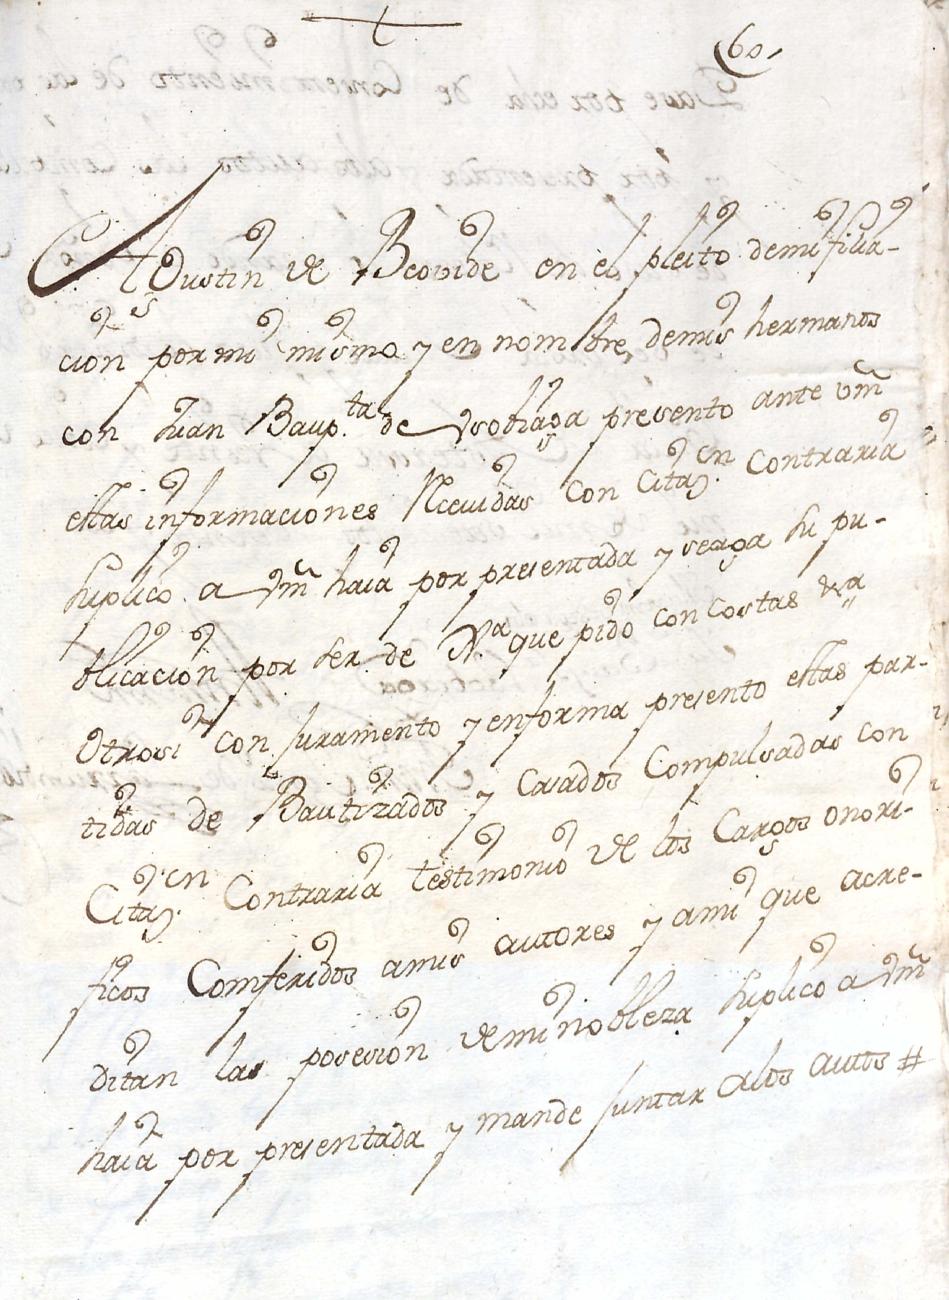 60,
Agustin de Beovide en el pleito demi filia-
ción por mi mismo y en nombre, demis hermanos
con Juan Baup.ta de Usobiaga presento ante vm
estas informaciones Recuidas con Citaz.on Contraria
suplico a Vm haia por presentada y vega su pu-
blicación por ser de Xa que pido con costas Va
Otrosi con juramento y enforma presento estas par-
tidas de Bautizados y Casados Compulsadas con
Citaz.on Contraria testimonio de los Cargos onori-
ficos Comferidos amis autores y ami que acre-
ditan las posesión demi nobleza suplico a Vm
haia por presentada y mande juntar alos autos #